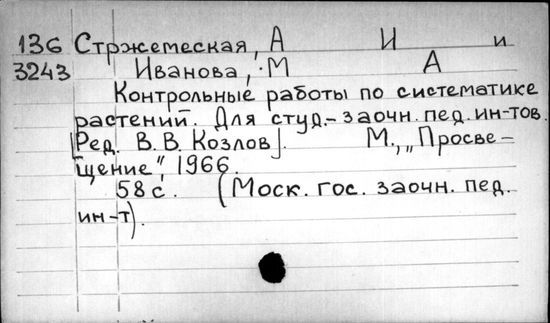 136 Стржемеская, А И и
3243 Иванова, М А
Контрольные работы по систематике
растений. Для студ.-заочн. пед. ин-тов.
[Ред. В. В. Козлов]. М., „Просве-
щение", 1966.
58 с. (Моск. гос. заочн. пед.
ин-т).